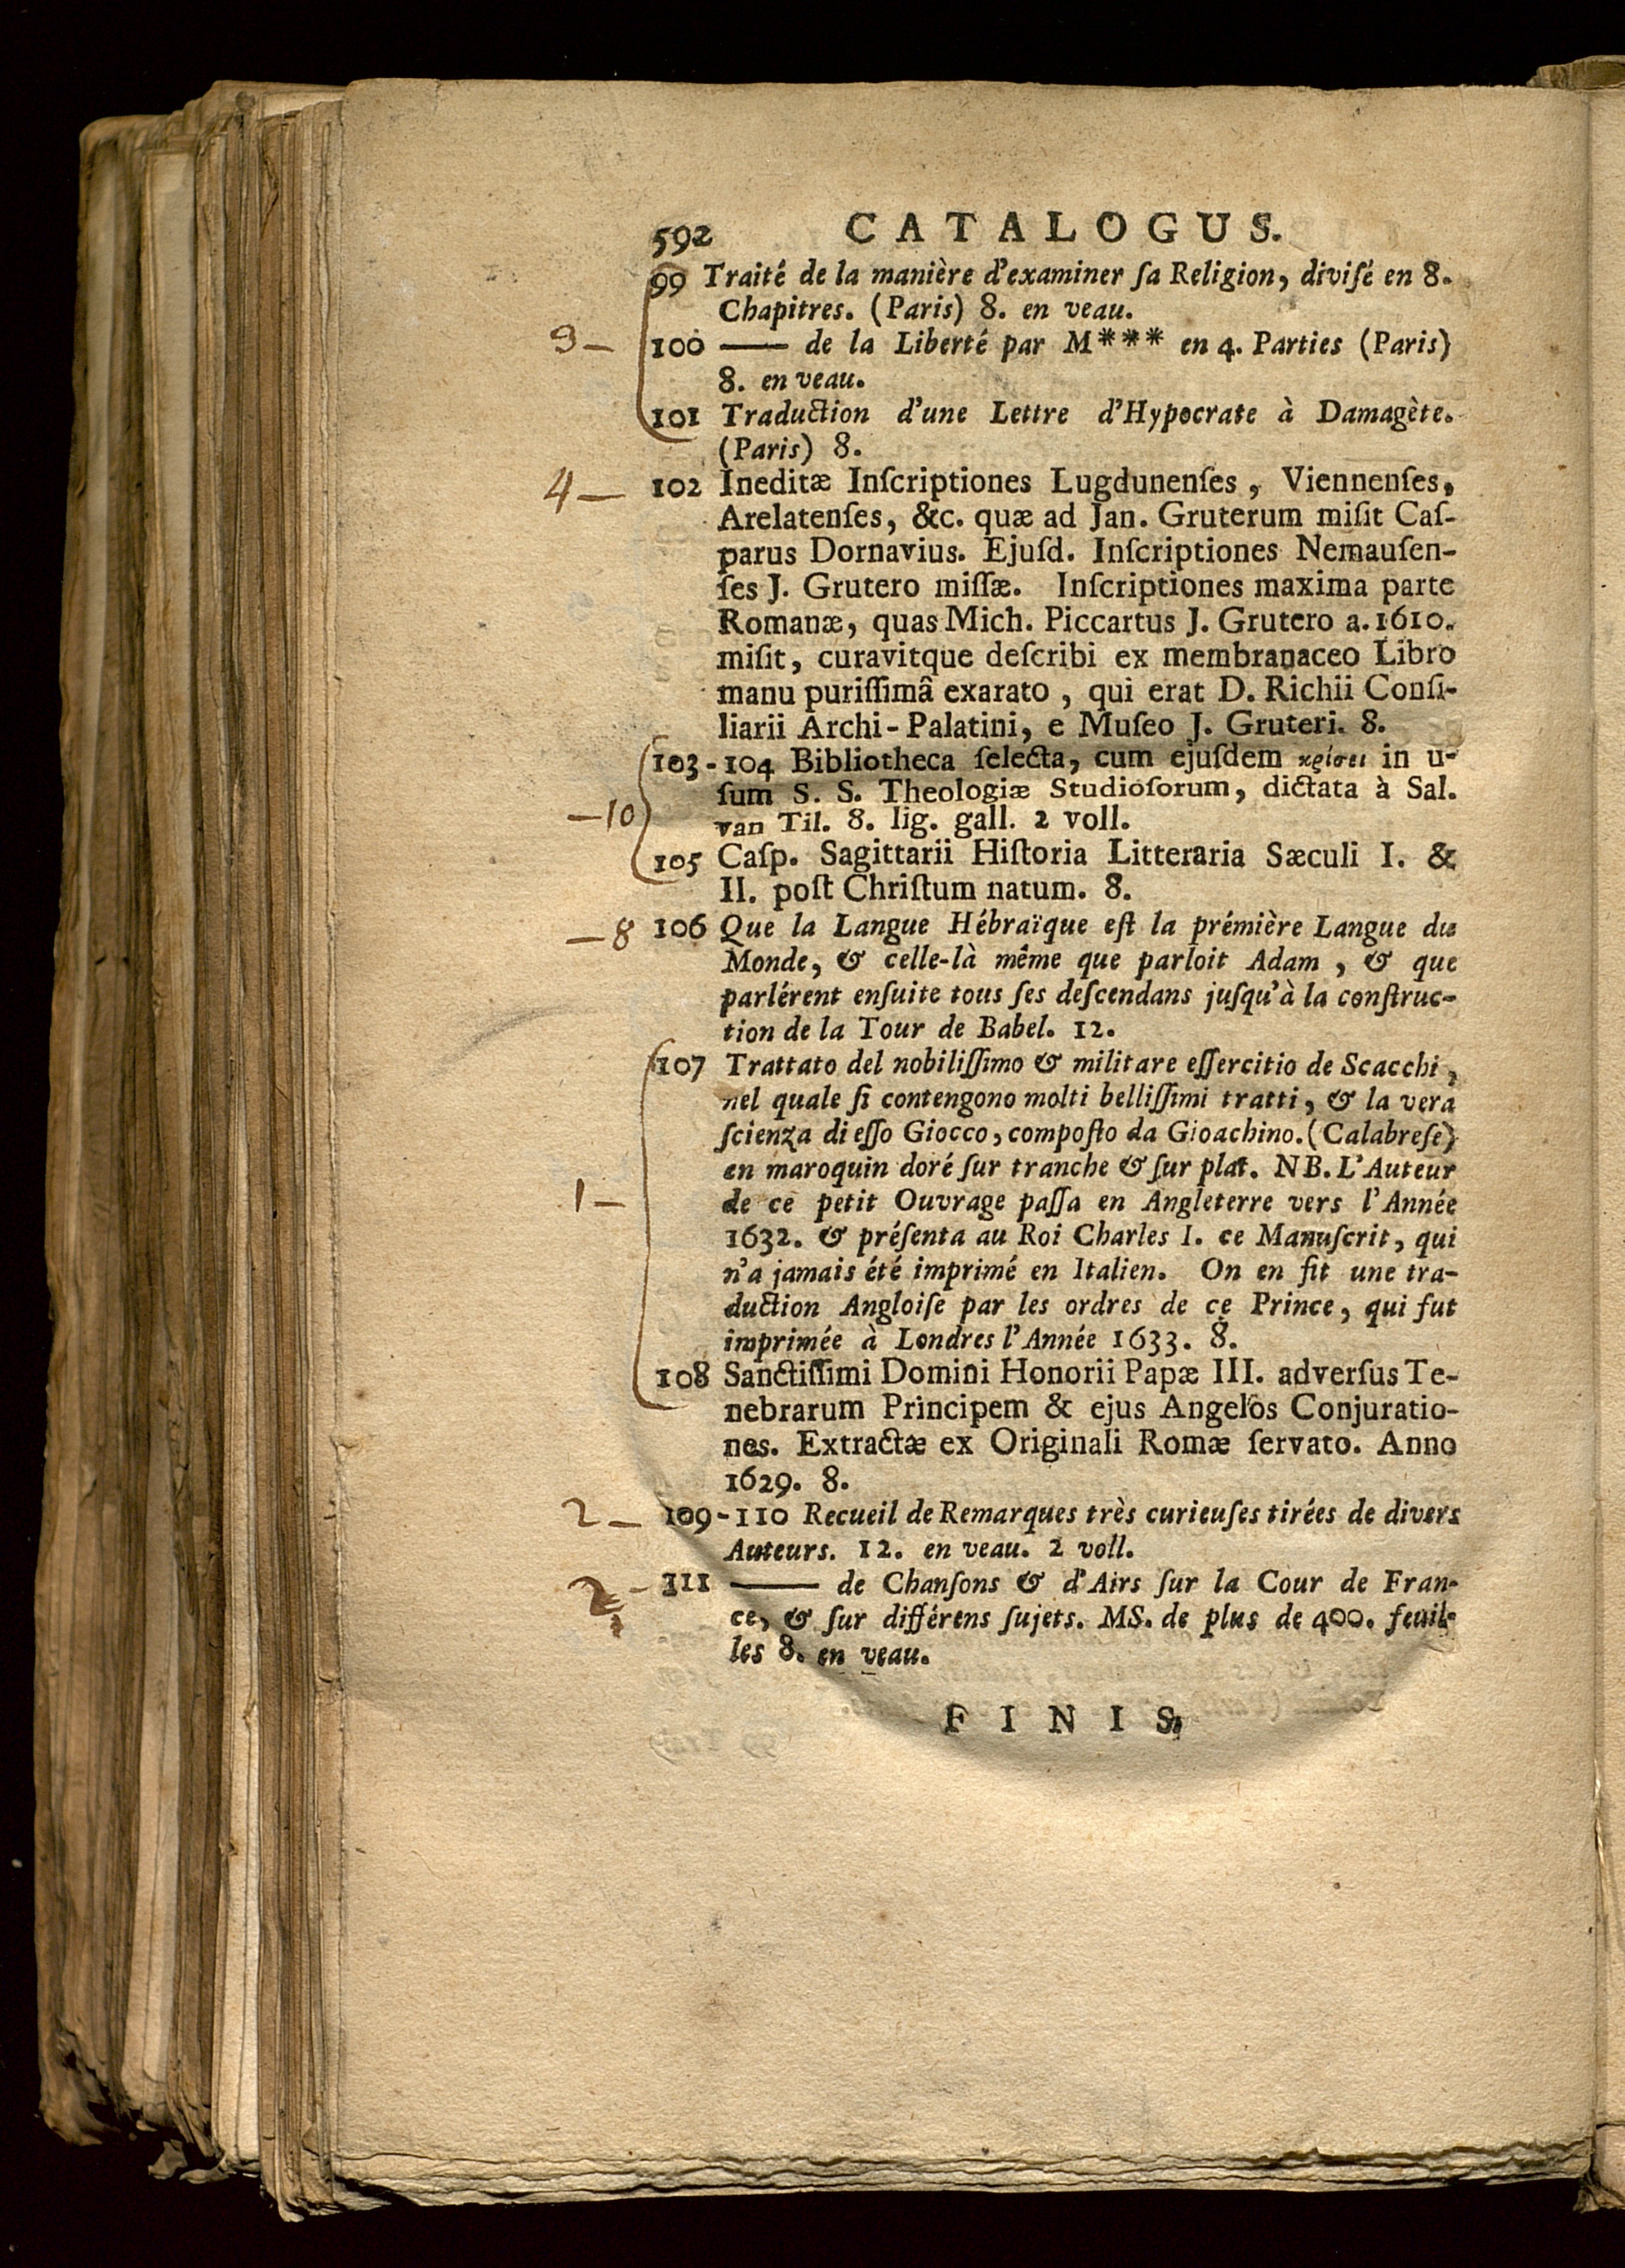 592 CATALOGUS.
99 Traité de la manière d'examiner ſa Religion, diviſé en 8.
Chapitres. (Paris) 8. en veau.
9 — 100 —— de la Liberté par M*** en 4. Parties (Paris)
8. en veau.
101 Traduction d'une Lettre d'Hypocrate à Damagète.
(Paris) 8.
4 — 102 Ineditæ Inſcriptiones Lugdunenſes, Viennenſes,
Arelatenſes, &c. quæ ad Jan. Gruterum miſit Caſ-
parus Dornavius. Ejuſd. Inſcriptiones Nemauſen-
ſes J. Grutero miſſæ. Inſcriptiones maxima parte
Romanæ, quas Mich. Piccartus J. Grutero a. 1610.
miſit, curavitque deſcribi ex membranaceo Libro
manu puriſſimâ exarato, qui erat D. Richii Conſi-
liarii Archi-Palatini, e Muſeo J. Gruteri. 8.
103-104 Bibliotheca ſelecta, cum ejuſdem κρίσει in u-
ſum S. S. Theologiæ Studioſorum, dictata à Sal.
—10 van Til. 8. lig. gall. 2 voll.
105 Caſp. Sagittarii Hiſtoria Litteraria Sæculi I. &
II. poſt Chriſtum natum. 8.
—8 106 Que la Langue Hébraïque eſt la prémière Langue du
Monde, & celle-là même que parloit Adam, & que
parlérent enſuite tous ſes deſcendans juſqu'à la conſtruc-
tion de la Tour de Babel. 12.
107 Trattato del nobiliſſimo & militare eſſercitio de Scacchi,
nel quale ſi contengono molti belliſſimi tratti, & la vera
ſcienza di eſſo Giocco, compoſto da Gioachino. (Calabreſe)
en maroquin doré ſur tranche & ſur plat. NB. L'Auteur
1 — de ce petit Ouvrage paſſa en Angleterre vers l'Année
1632. & préſenta au Roi Charles I. ce Manuſcrit, qui
n'a jamais été imprimé en Italien. On en fit une tra-
duction Angloiſe par les ordres de ce Prince, qui fut
imprimée à Londres l'Année 1633. 8.
108 Sanctiſſimi Domini Honorii Papæ III. adverſus Te-
nebrarum Principem & ejus Angelos Conjuratio-
nes. Extractæ ex Originali Romæ ſervato. Anno
1629. 8.
2 — 109-110 Recueil de Remarques très curieuſes tirées de divers
Auteurs. 12. en veau. 2 voll.
2 - 111 —— de Chanſons & d'Airs ſur la Cour de Fran-
ce, & ſur différens ſujets. MS. de plus de 400. feuil-
les 8. en veau.
FINIS.